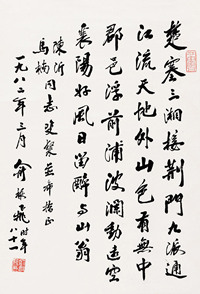 楚塞三湘接荆門九派通
江流天地外山色有無中
郡邑浮前浦波瀾動遠空
襄陽好風日留醉与山翁
陳沂
馬楠同志雙粲並希指正
一九八二年三月
俞振飛時年
八十一